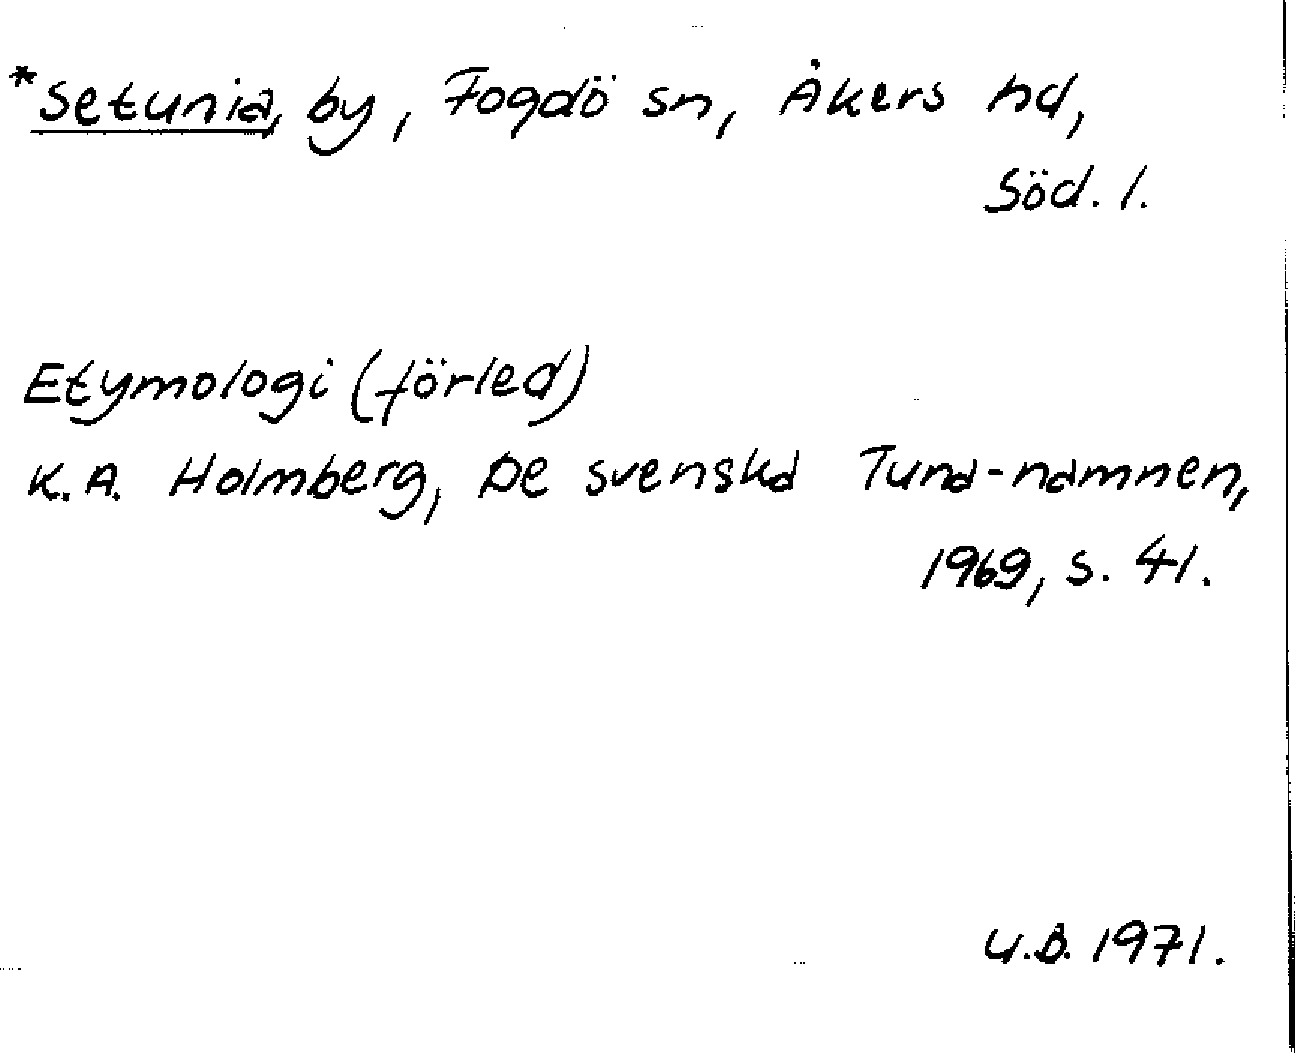 *Setunia, by, Fogdö sn, Åkers hd,
Söd. l.
Etymologi (förled)
K.A. Holmberg, De svenska Tuna-namnen,
1969, s. 41.
U.B. 1971.